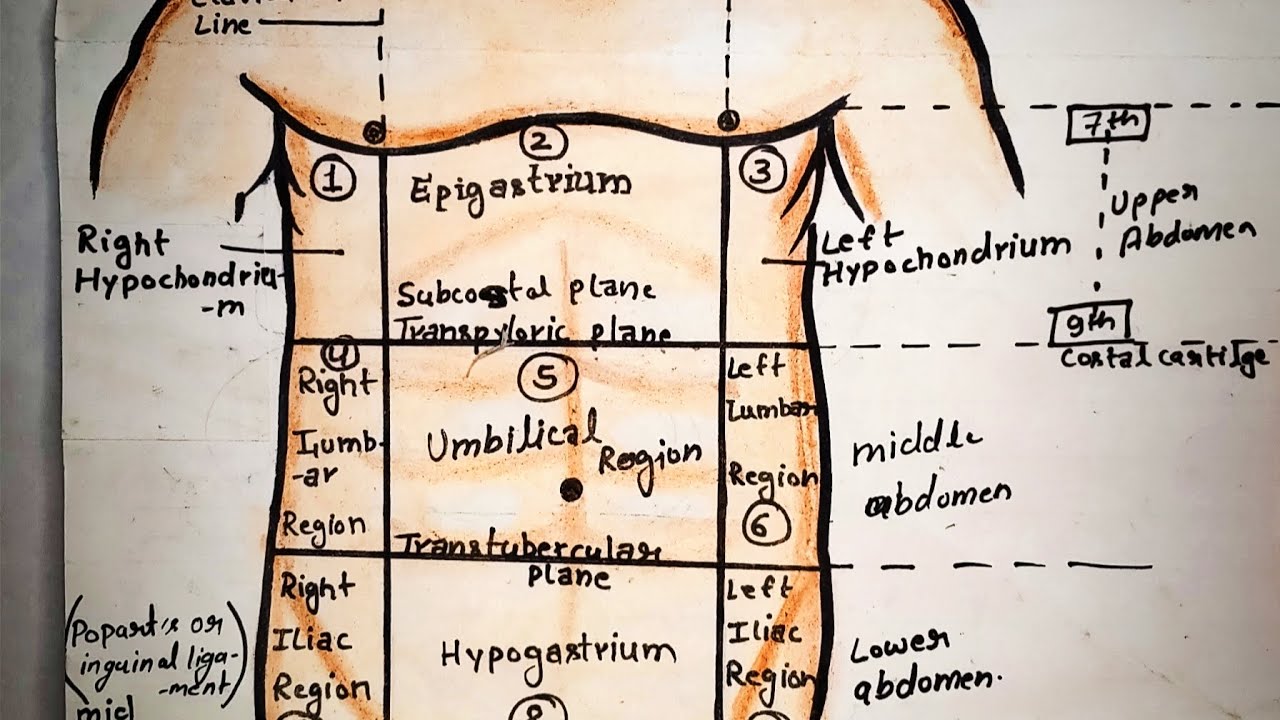 Line
7th
1
2
3
Epigastrium
Upper
Abdomen
Right
Hypochondriu-
-m
Left
Hypochondrium
Subcostal plane
Transpyloric plane
9th
Costal cartilge
4
Right
Lumb-
-ar
Region
5
Umbilical
Region
Left
Lumbar
Region
6
middle
abdomen
Transtubercular
plane
(Popart's or
inguinal liga-
-ment)
Right
Iliac
Region
Hypogastrium
8
Left
Iliac
Region
Lower
abdomen.